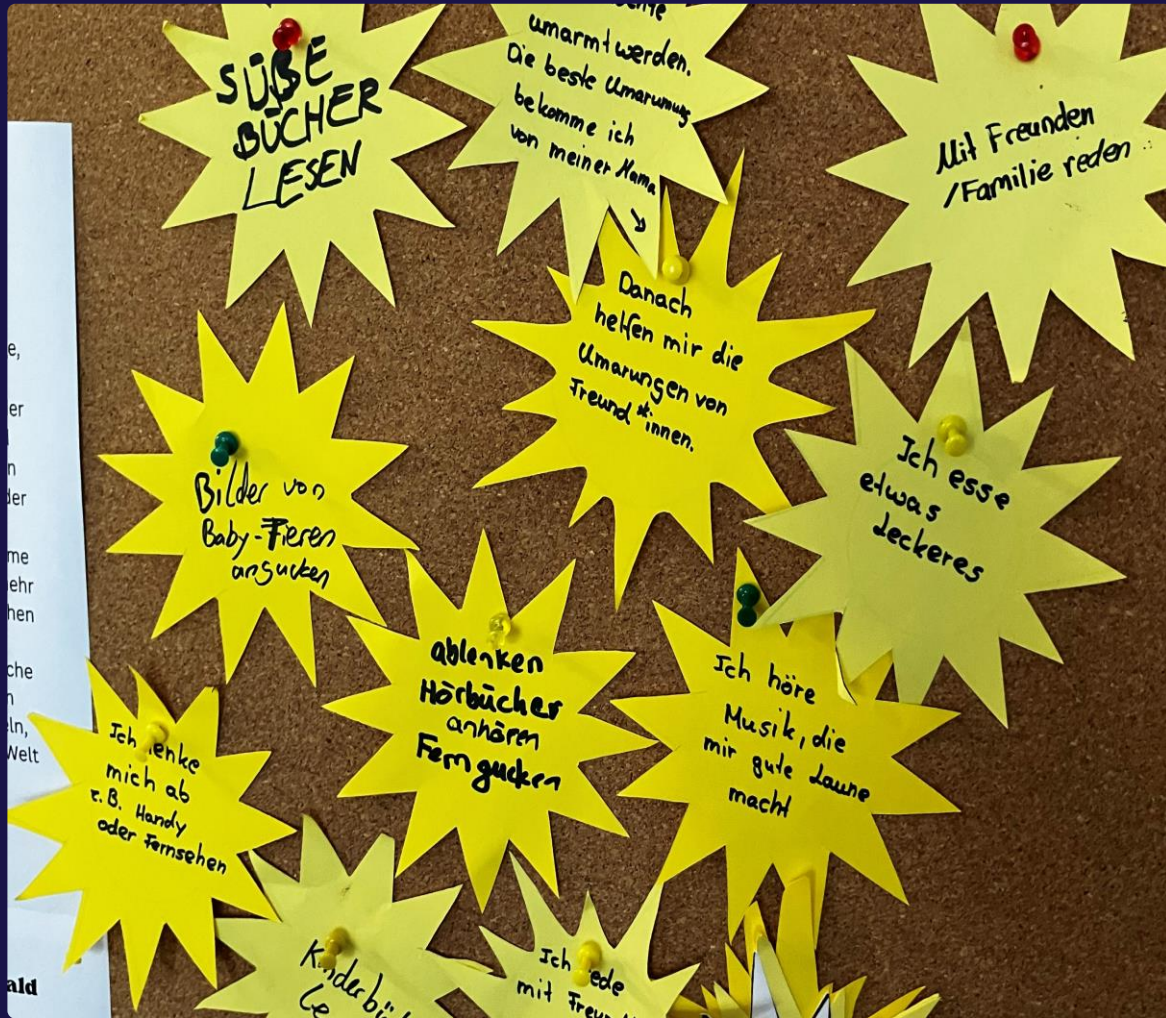 SÜßE
BÜCHER
LESEN
umarmt werden.
Die beste Umarmung
bekomme ich
von meiner Mama
Mit Freunden
/Familie reden
Danach
helfen mir die
Umarungen von
Freund*innen.
Ich esse
etwas
Leckeres
Bilder von
Baby-Tieren
angucken
ablenken
Hörbücher
anhören
Ferngucken
Ich höre
Musik, die
mir gute Laune
macht
Ich lenke
mich ab
z.B. Handy
oder Fernsehen
Ich rede
mit
e,
er
n
der
me
ehr
hen
che
n
eln,
Welt
ald